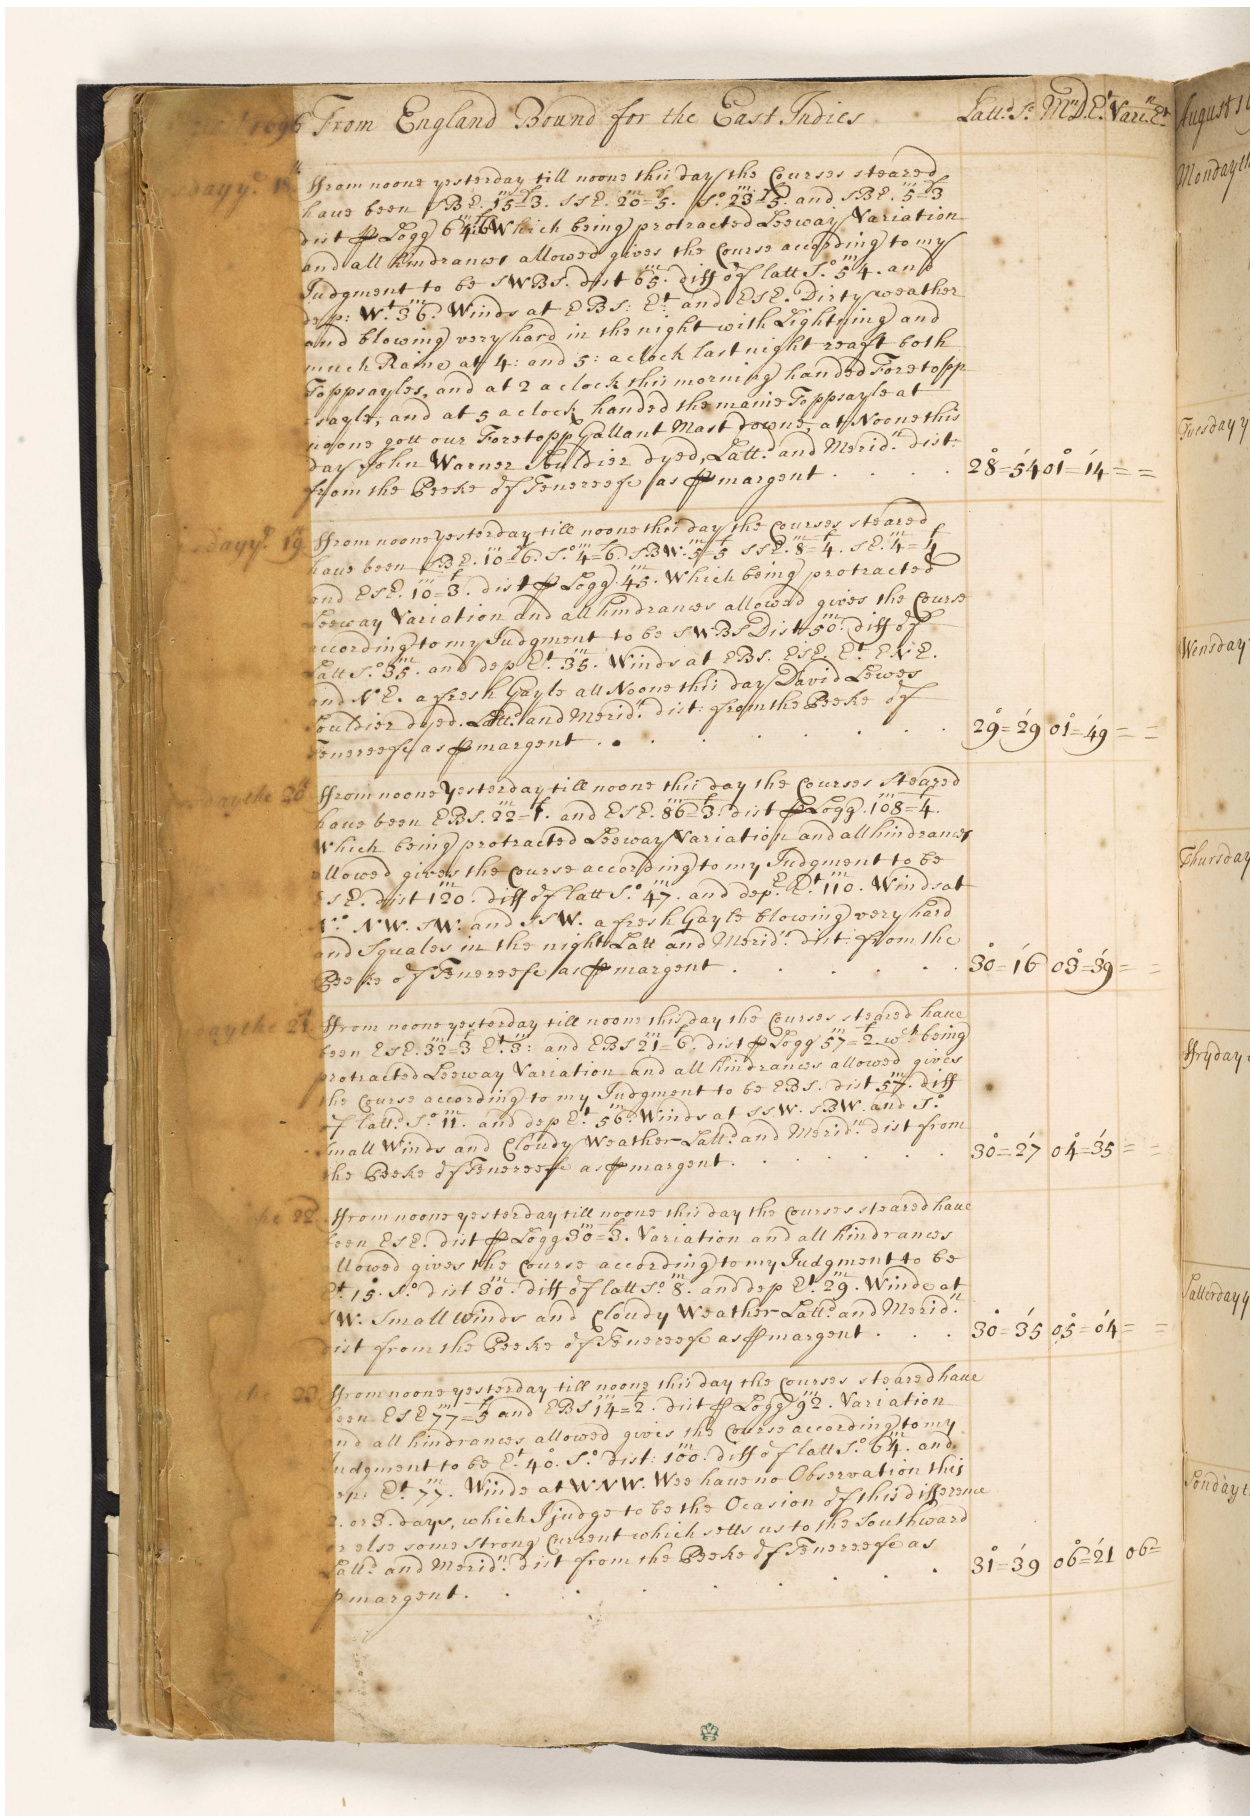 1696 From England Bound for the East Indies Latt.d S.o M.n D.E.t Vari.n E.t
day y.e 18 ffrom noone yesterday till noone this day the Courses steared
haue been SBE. 15=3. SSE. 20=5. S.o 23=5. and SBE. 5=3
dist ⅌ Logg 64:6 Which being protracted Leeway Variation
and all hindrances allowed gives the Course according to my
Judgment to be SWBS. dist 65. diff of latt S.o 54. and
dep: W.t 36. Winds at EBS: E.t and ESE. Dirty weather
and blowing very hard in the night with Lightning and
much Raine at 4: and 5: a clock last night reaft both
Toppsayles, and at 2 a clock this morning handed Foretopp
sayle, and at 5 a clock handed the maine Toppsayle at
noone gott our Foretopp Gallant Mast downe, at Noone this
day John Warner Souldier dyed, Latt.d and Merid.n dist:
from the Peeke of Tenereefe as ⅌ margent . . . . 28°=54' 01°=14' = =
day y.e 19 ffrom noone yesterday till noone this day the Courses steared
haue been SBE. 10=6. S.o 4=6. SBW. 5=5 SSE. 8=4. SE. 4=4
and ESE. 10=3. dist ⅌ Logg. 45. Which being protracted
Leeway Variation and all hindrances allowed gives the Course
according to my Judgment to be SWBS Dist 50. diff of
Latt S.o 35. and dep E.t 35. Winds at EBS. ESE. E.t ENE.
and NE. a fresh Gayle all Noone this day David Lewes
Souldier dyed. Latt.d and Merid.n dist: from the Peeke of
Tenereefe as ⅌ margent . . . . . . . 29°=29' 01°=49' = =
day the 20 ffrom noone Yesterday till noone this day the Courses Steared
haue been EBS. 22=1. and ESE. 86=3. dist ⅌ Logg. 108=4.
Which being protracted Leeway Variation and all hindrances
allowed gives the Course according to my Judgment to be
ESE. dist 120. diff of latt S.o 47. and dep. E.t 110. Winds at
N.o NW. SW. and SSW. a fresh Gayle blowing very hard
and Squales in the night Latt and Merid.n dist: from the
Peeke of Tenereefe as ⅌ margent . . . . . . 30°=16' 03°=39' = =
day the 21 ffrom noone yesterday till noone this day the Courses steared haue
been ESE. 32=3 E.t 3: and EBS 21=6. dist ⅌ Logg 57=2 w.ch being
protracted Leeway Variation and all hindrances allowed gives
the Course according to my Judgment to be EBS. dist 57. diff
of latt.d S.o 11. and dep E.t 56. Winds at SSW. SBW. and S.o
Small Winds and Cloudy Weather Latt.d and Merid.n dist from
the Peeke of Tenereefe as ⅌ margent . . . . . . 30°=27' 04°=35' = =
the 22 ffrom noone yesterday till noone this day the Courses steared haue
been ESE. dist ⅌ Logg 30=3. Variation and all hindrances
allowed gives the Course according to my Judgment to be
E.t 15. S.o dist 30. diff of latt S.o 8. and dep E.t 29. Winde at
SW. Small winds and Cloudy Weather Latt.d and Merid.n
dist from the Peeke of Tenereefe as ⅌ margent . . . 30°=35' 05°=04' = =
the 23 ffrom noone yesterday till noone this day the Courses steared haue
been ESE 77=5 and EBS 14=2. dist ⅌ Logg 92. Variation
and all hindrances allowed gives the Course according to my
Judgment to be E.t 40. S.o dist: 100. diff of latt S.o 64. and
dep: E.t 77. Winde at WNW. Wee haue no Observation this
2. or 3. days, which I judge to be the Ocasion of this difference
or else some strong Current which setts us to the Southward
Latt.d and Merid.n dist from the Peeke of Tenereefe as
⅌ margent . . . . . . . . 31°=39' 06°=21' 06=
August
Monday
Tuesday
Wensday
Thursday
ffryday
Satterday
Sonday